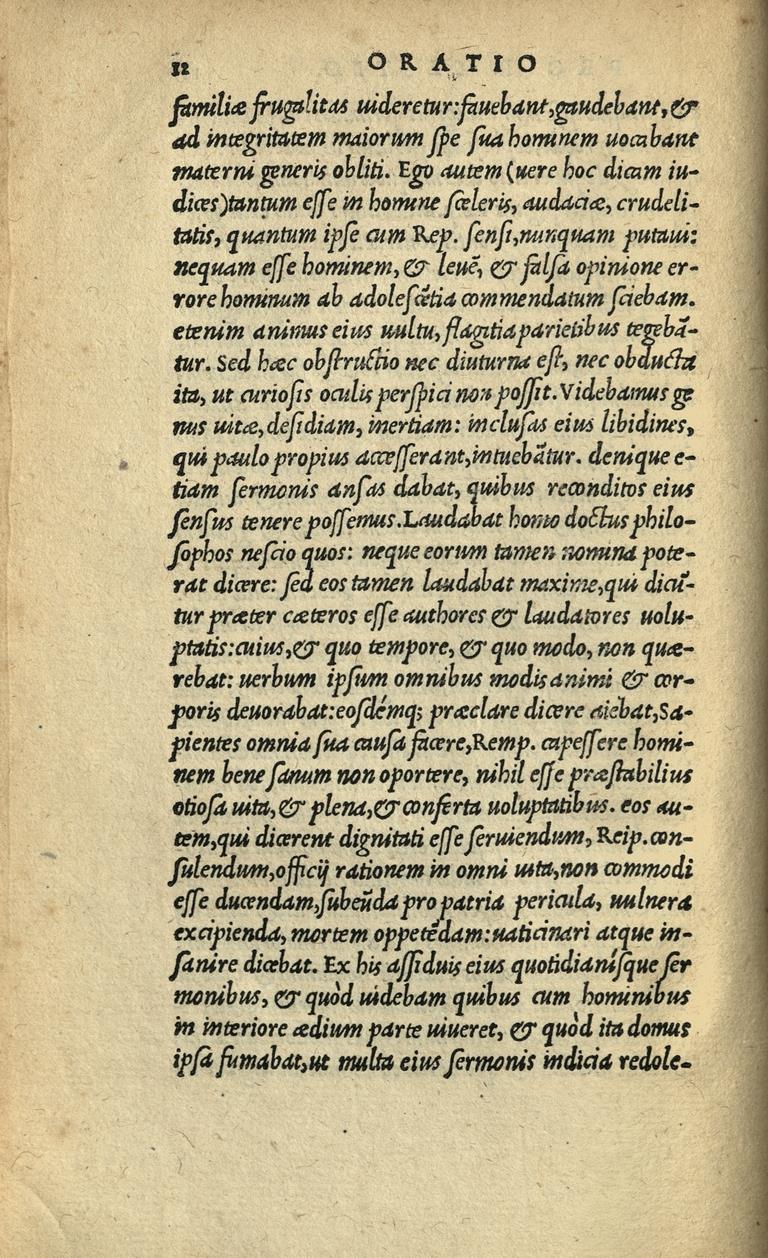 12 ORATIO
familiæ frugalitas uideretur: fauebant, gaudebant, &
ad integritatem maiorum spe sua hominem uocabant
materni generis obliti. Ego autem (uere hoc dicam iu-
dices) tantum esse in homine sceleris, audaciæ, crudeli-
tatis, quantum ipse cum Rep. sensi, nunquam putaui:
nequam esse hominem, & leuē, & falsa opinione er-
rore hominum ab adolescētia commendatum sciebam.
etenim animus eius uultu, flagitia parietibus tegebā-
tur. Sed hæc obstructio nec diuturna est, nec obducta
ita, ut curiosis oculis perspici non possit. Videbamus ge
nus uitæ, desidiam, inertiam: inclusas eius libidines,
qui paulo propius accesserant, intuebātur. denique e-
tiam sermonis ansas dabat, quibus reconditos eius
sensus tenere possemus. Laudabat homo doctus philo-
sophos nescio quos: neque eorum tamen nomina pote-
rat dicere: sed eos tamen laudabat maxime, qui dicū-
tur præter cæteros esse authores & laudatores uolu-
ptatis: cuius, & quo tempore, & quo modo, non quæ-
rebat: uerbum ipsum omnibus modis animi & cor-
poris deuorabat: eosdémq; præclare dicere aiebat, Sa-
pientes omnia sua causa facere, Remp. capessere homi-
nem bene sanum non oportere, nihil esse præstabilius
otiosa uita, & plena, & conferta uoluptatibus. eos au-
tem, qui dicerent dignitati esse seruiendum, Reip. con-
sulendum, officij rationem in omni uita, non commodi
esse ducendam, subeūda pro patria pericula, uulnera
excipienda, mortem oppetēdam: uaticinari atque in-
sanire dicebat. Ex his assiduis eius quotidianísque ser
monibus, & quòd uidebam quibus cum hominibus
in interiore ædium parte uiueret, & quòd ita domus
ipsa fumabat, ut multa eius sermonis indicia redole-